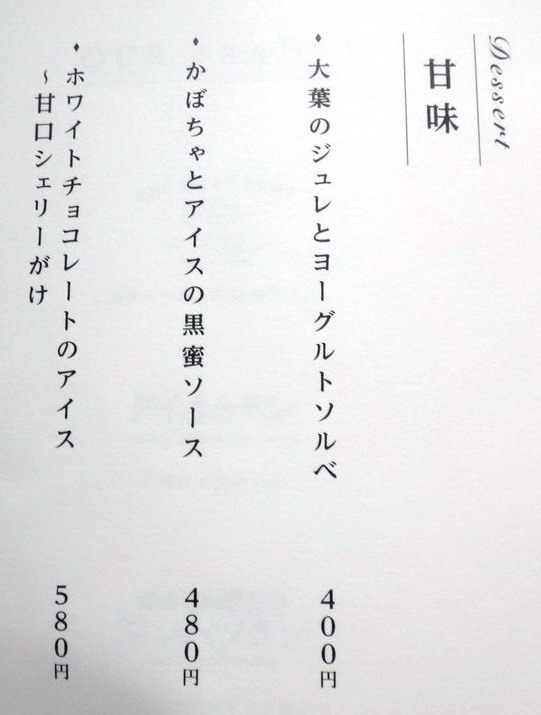 Dessert
甘味
♦大葉のジュレとヨーグルトソルベ
400円
♦かぼちゃとアイスの黒蜜ソース
480円
♦ホワイトチョコレートのアイス
～甘口シェリーがけ
580円